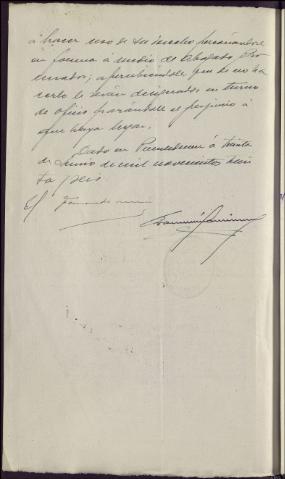 á hacer uso de su derecho personándose
en forma á medio de Abogado, Pro
curador; apercibiéndole que de no ha
cerlo le serán designados en turno
de oficio parándole el perjuicio á
que haya lugar.
Dado en á treinta
de Junio de mil novecientos trein
ta y seis